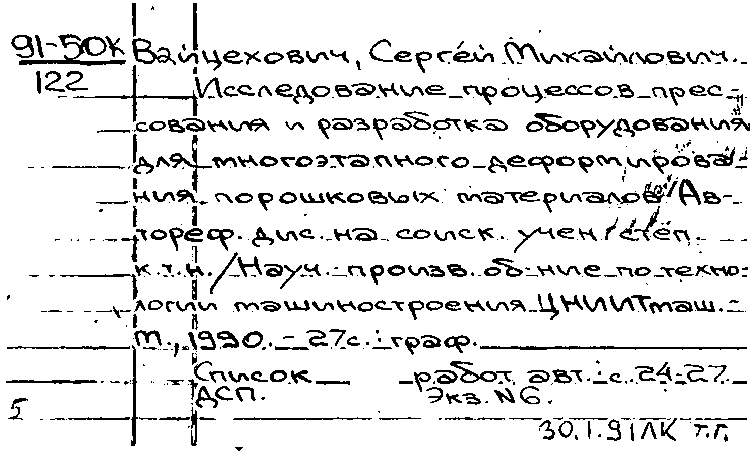 91-50К Вайцехович, Сергей Михайлович.
122 Исследование процессов прес-
сования и разработка оборудования
для многоэтапного деформирова-
ния порошковых материалов: Ав-
тореф. дис. на соиск. учен. степ.
к.т.н. / Науч.-произв. об-ние по техно-
логии машиностроения ЦНИИТмаш. -
М., 1990. - 27с. : граф.
Список работ авт.: с. 24-27
ДСП. Экз. N 6.
5
30.1.91 ЛК Т.Г.